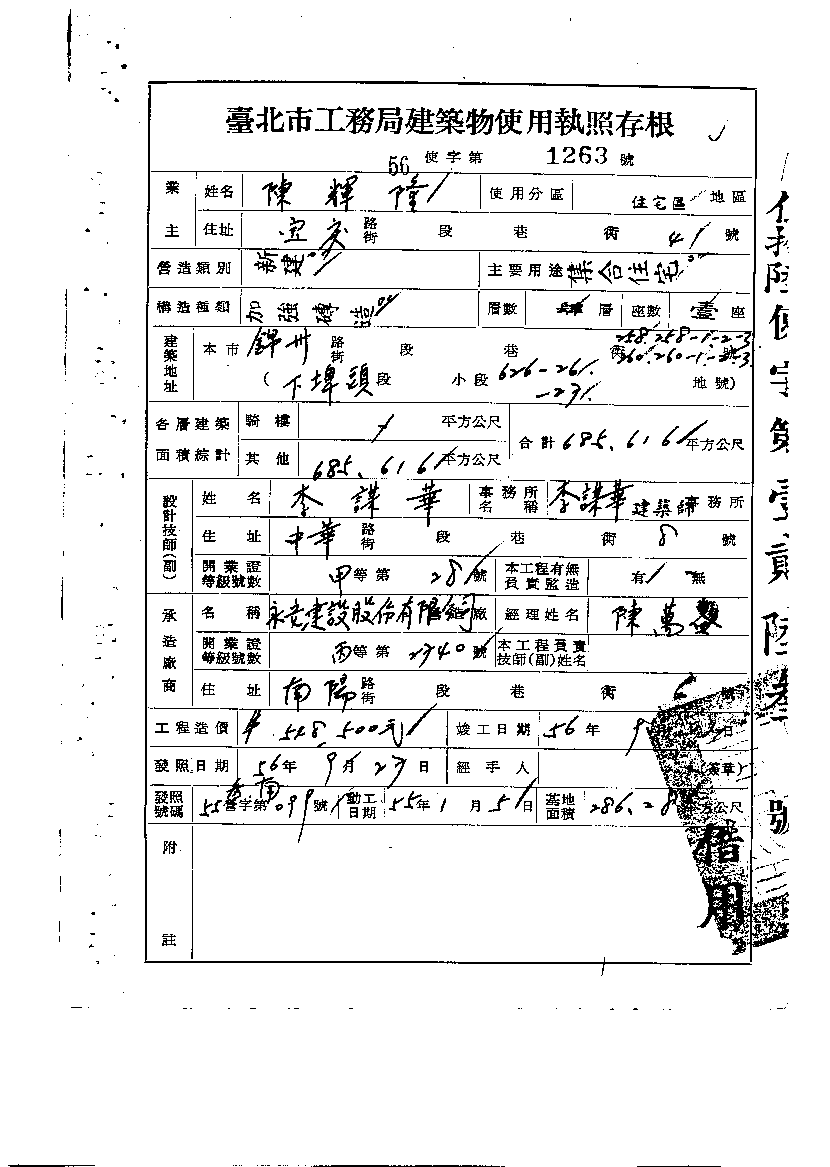 臺北市工務局建築物使用執照存根
56 使字第 1263 號
業主 姓名 陳輝隆 使用分區 住宅區 地區
住址 宜安 路街 段 巷 衖 41 號
營造類別 新建 主要用途 集合住宅
構造種類 加強磚造 層數 層 座數 座
建築地址 本市 錦州 路街 段 巷 衖 258.258-1-2-3 260.260-1-2-3 號
(下埤頭段 小段 626-261 -231 地號)
各層建築面積綜計 騎樓 平方公尺 合計 685.616 平方公尺
其他 685.616 平方公尺
設計技師(副) 姓名 李謀華 事務所名稱 李謀華建築師事務所
住址 中華 路街 段 巷 衖 8 號
開業證等級號數 甲等第 281 號 本工程有無負責監造 有 無
承造廠商 名稱 永 建設股份有限公司 造廠 經理姓名 陳萬
開業證等級號數 丙等第 2740 號 本工程負責技師(副)姓名
住址 南陽 路街 段 巷 衖
工程造價 548,500元 竣工日期 56年 9 日
發照日期 56年9月23日 經手人 (簽章)
發照號碼 55營字第 099 號 動工日期 55年1月5日 基地面積 286.28 平方公尺
附註
借用
伍拾陸使字第壹貳陸叁號